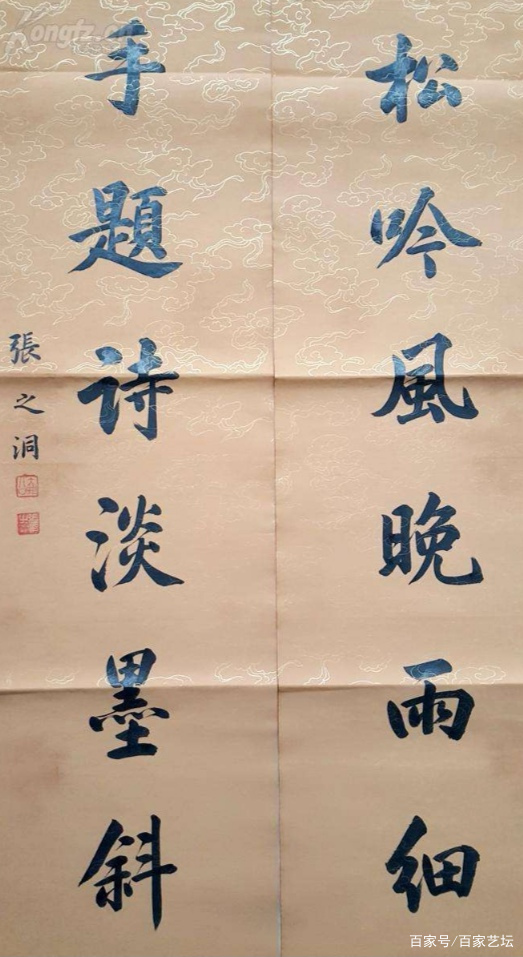 松吟風晚雨細
手題诗淡墨斜
張之洞
百家号/百家艺坛